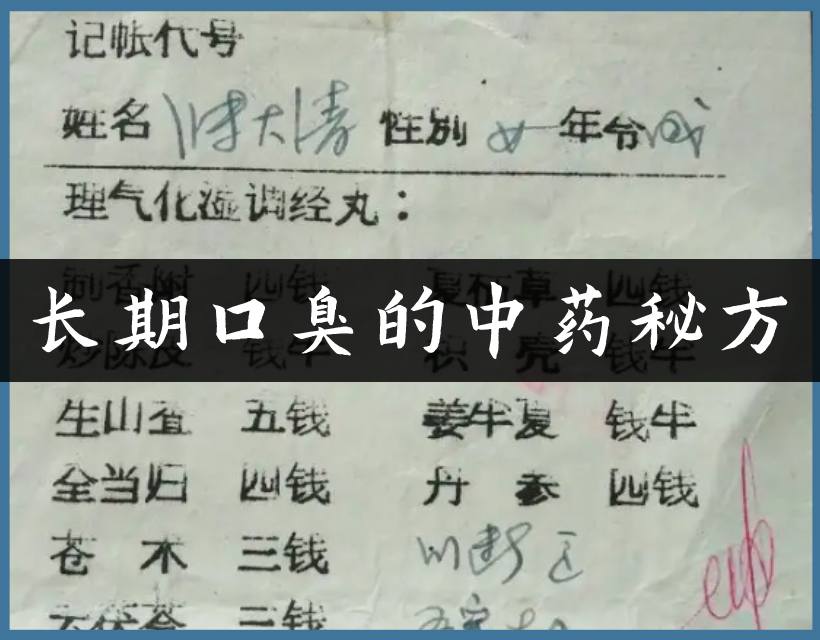 记帐代号
姓名 陈大清 性别 女 年令 成
理气化湿调经丸：
制香附 四钱 夏枯草 四钱
长期口臭的中药秘方
炒陈皮 钱半 枳壳 钱半
生山查 五钱 姜半夏 钱半
全当归 四钱 丹参 四钱
苍术 三钱 川断
云茯苓 三钱